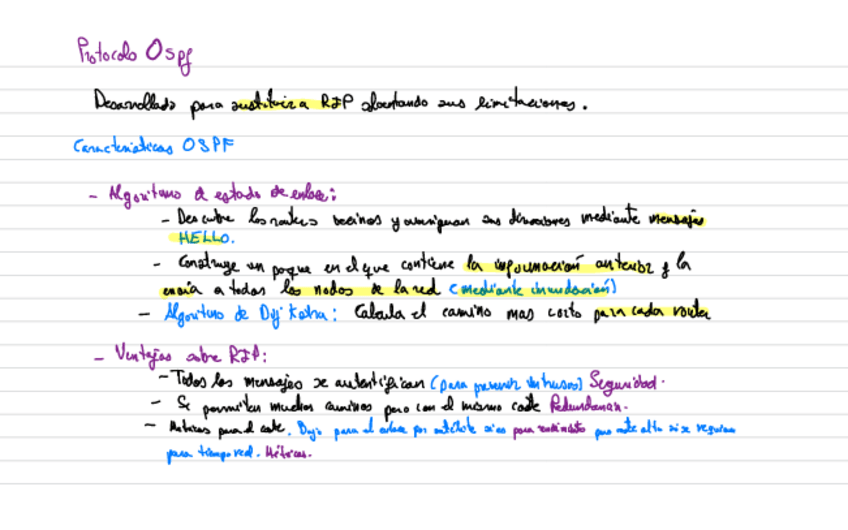 Protocolo Ospf
Desarrollado para sustituir a RIP abortando sus limitaciones.
Características OSPF
- Algoritmo de estado de enlace:
- Descubre los routers vecinos y averiguan sus direcciones mediante mensajes
HELLO.
- Construye un paque en el que contiene la información anterior y la
envía a todos los nodos de la red (mediante inundación)
- Algoritmo de Dijkstra: Calcula el camino mas corto para cada router
- Ventajas sobre RIP:
- Todos los mensajes se autentifican (para prevenir intrusos) Seguridad.
- Se permiten muchos caminos pero con el mismo coste Redundancia.
- Metricas para el coste. Bajo para el enlace por satélite si es para rendimiento pero alto si se requiere
para tiempo real. Métricas.